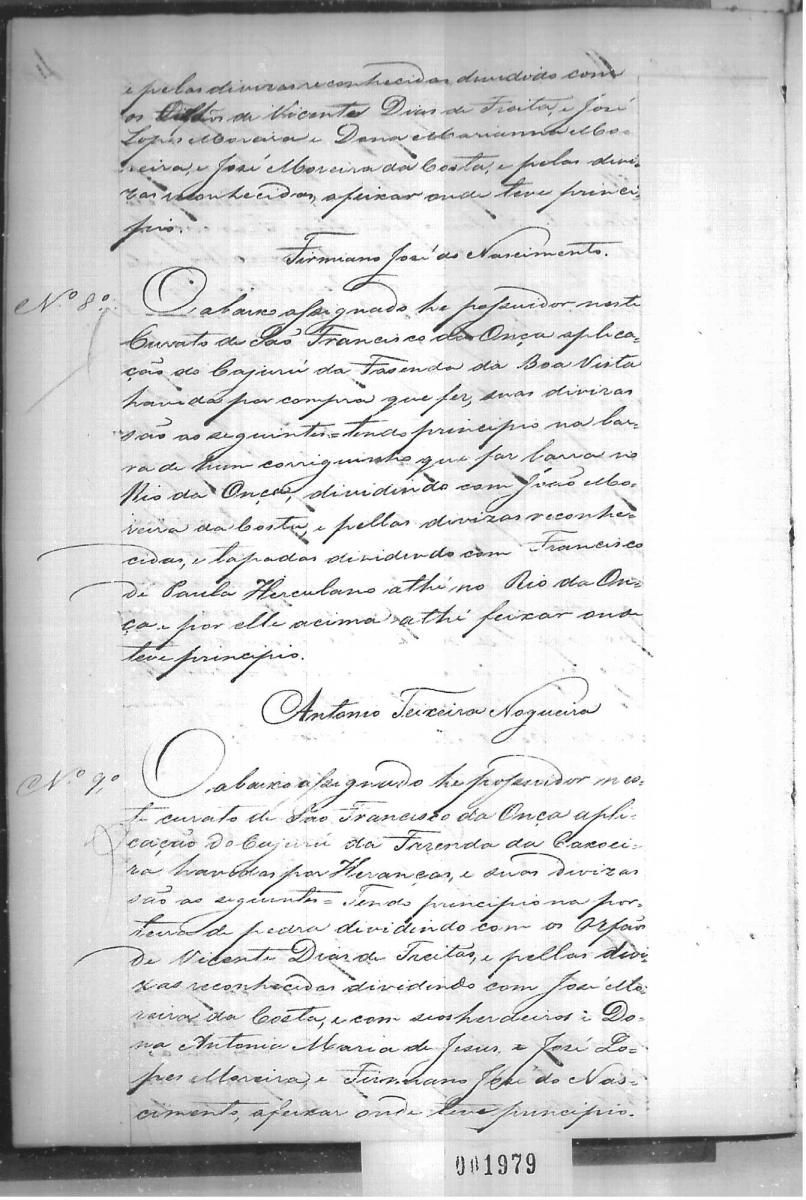 e pelas divizas reconhecidas dividido com
os Orfãos de Vicente Dias de Freita, e José
Lopes Moreira e Dona Marianna Mo-
reira, e José Moreira da Costa, e pelas divi-
zas reconhecidas, afeixar onde teve princi-
pio.
Firmiano José do Nascimento.
Nº 8º
O abaixo assignado he possuidor neste
Curato de São Francisco da Onça aplica-
ção do Cajurú da Fasenda da Boa Vista
havida por compra que fes, suas divizas
são as seguintes = tendo principio na bar-
ra de hum corriguinho que faz barra no
Rio da Onça, dividindo com João Mo-
reira da Costa, e pellas divizas reconhe-
cidas, e tapadas dividindo com Francisco
de Paula Herculano athé no Rio da On-
ça e por elle acima athé feixar onde
teve principio.
Antonio Teixeira Nogueira
Nº 9º
O abaixo assignado he possuidor nes-
te curato de São Francisco da Onça apli-
cação do Cajurú da Fazenda da Caxoei-
ra havidas por Heranças, e suas divizas
são as seguintes = Tendo principio na por-
teira de pedra dividindo com os Orfãos
de Vicente Dias de Freitas, e pellas divi-
zas reconhecidas dividindo com José Mo-
reira da Costa, e com seos herdeiros e Do-
na Antonia Maria de Jesus, e José Lo-
pes Moreira, e Firmiano José do Nas-
cimento, afeixar onde teve principio.
001979